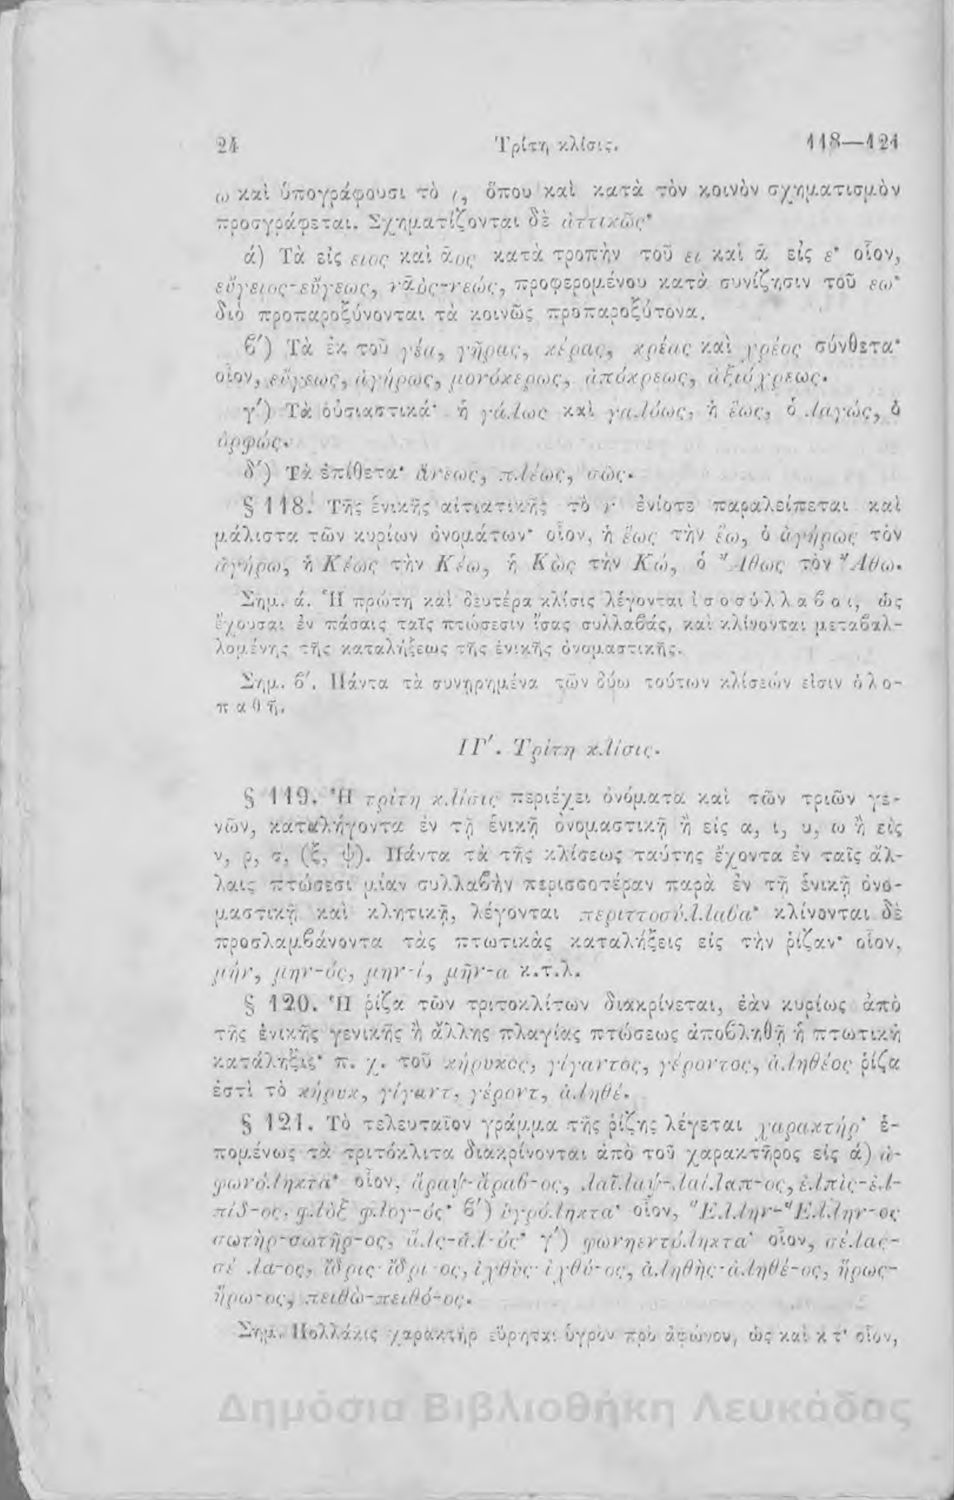 24 Τρίτη κλίσις. 118—121
ω καὶ ὑπογράφουσι τὸ ι, ὅπου καὶ κατὰ τὸν κοινὸν σχηματισμὸν
προσγράφεται. Σχηματίζονται δὲ ἀττικῶς·
ά) Τὰ εἰς ειος καὶ ᾱος κατὰ τροπὴν τοῦ ει καὶ ᾱ εἰς ε· οἷον,
εὔγειος-εὔγεως, νᾱὸς-νεώς, προφερομένου κατὰ συνίζησιν τοῦ εω·
διὸ προπαροξύνονται τὰ κοινῶς προπαροξύτονα.
β') Τὰ ἐκ τοῦ γέα, γῆρας, κέρας, κρέας καὶ χρέος σύνθετα·
οἷον, εὔγεως, ἀγήρως, μονόκερως, ἀπόκρεως, ἀξιόχρεως.
γ') Τὰ οὐσιαστικά· ἡ γάλως καὶ γαλόως, ἡ ἕως, ὁ λαγώς, ὁ
ὀρφώς.
δ') Τὰ ἐπίθετα· ἄνεως, πλέως, σῶς.
§ 118. Τῆς ἑνικῆς αἰτιατικῆς τὸ ν ἐνίοτε παραλείπεται καὶ
μάλιστα τῶν κυρίων ὀνομάτων· οἷον, ἡ ἕως τὴν ἕω, ὁ ἀγήρως τὸν
ἀγήρω, ἡ Κέως τὴν Κέω, ἡ Κῶς τὴν Κώ, ὁ Ἄθως τὸν Ἄθω.
Σημ. ά. Ἡ πρώτη καὶ δευτέρα κλίσις λέγονται ἰσοσύλλαβοι, ὡς
ἔχουσαι ἐν πάσαις ταῖς πτώσεσιν ἴσας συλλαβάς, καὶ κλίνονται μεταβαλ-
λομένης τῆς καταλήξεως τῆς ἑνικῆς ὀνομαστικῆς.
Σημ. β'. Πάντα τὰ συνῃρημένα τῶν δύω τούτων κλίσεών εἰσιν ὁλο-
παθῆ.
ΙΓ'. Τρίτη κλίσις.
§ 119. Ἡ τρίτη κλίσις περιέχει ὀνόματα καὶ τῶν τριῶν γε-
νῶν, καταλήγοντα ἐν τῇ ἑνικῇ ὀνομαστικῇ ἢ εἰς α, ι, υ, ω ἢ εἰς
ν, ρ, σ, (ξ, ψ). Πάντα τὰ τῆς κλίσεως ταύτης ἔχοντα ἐν ταῖς ἄλ-
λαις πτώσεσι μίαν συλλαβὴν περισσοτέραν παρὰ ἐν τῇ ἑνικῇ ὀνο-
μαστικῇ καὶ κλητικῇ, λέγονται περιττοσύλλαβα· κλίνονται δὲ
προσλαμβάνοντα τὰς πτωτικὰς καταλήξεις εἰς τὴν ῥίζαν· οἷον,
μήν, μην-ός, μην-ί, μῆν-α κ.τ.λ.
§ 120. Ἡ ῥίζα τῶν τριτοκλίτων διακρίνεται, ἐὰν κυρίως ἀπὸ
τῆς ἑνικῆς γενικῆς ἢ ἄλλης πλαγίας πτώσεως ἀποβληθῇ ἡ πτωτικὴ
κατάληξις· π. χ. τοῦ κήρυκος, γίγαντος, γέροντος, ἀληθέος ῥίζα
ἐστὶ τὸ κήρυκ, γίγαντ, γέροντ, ἀληθέ.
§ 121. Τὸ τελευταῖον γράμμα τῆς ῥίζης λέγεται χαρακτήρ· ἑ-
πομένως τὰ τριτόκλιτα διακρίνονται ἀπὸ τοῦ χαρακτῆρος εἰς ά) ἀ-
φωνόληκτα· οἷον, ἄραψ-ἄραβ-ος, λαῖλαψ-λαίλαπ-ος, ἐλπὶς-ἐλ-
πίδ-ος, φλὸξ φλογ-ός· β') ὑγρόληκτα· οἷον, Ἕλλην-Ἕλλην-ος
σωτὴρ-σωτῆρ-ος, ἅλς-ἁλ-ός· γ') φωνηεντόληκτα· οἷον, σέλας-
σέλα-ος, ἴδρις-ἴδρι-ος, ἰχθὺς-ἰχθύ-ος, ἀληθὴς-ἀληθέ-ος, ἥρως-
ἥρω-ος, πειθὼ-πειθό-ος.
Σημ. Πολλάκις χαρακτὴρ εὕρηται ὑγρὸν πρὸ ἀφώνου, ὡς καὶ κτ· οἷον,
Δημόσια Βιβλιοθήκη Λευκάδας